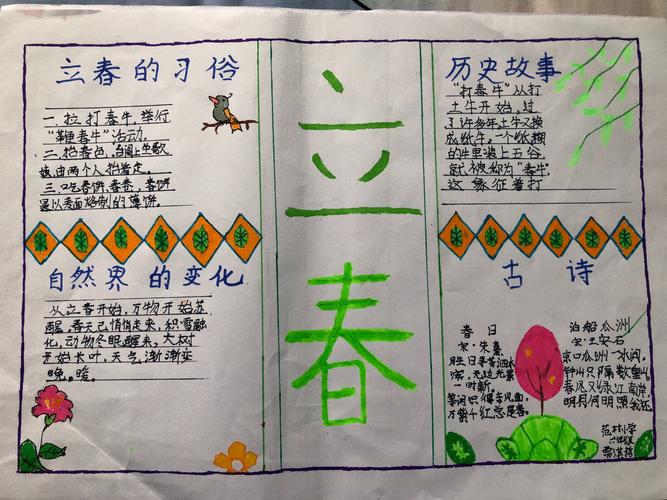 立春的习俗
一、拉打春牛,举行
"鞭春牛"活动。
二、抬春色,台阁上坐歌
妓,由两个人抬着走。
三、吃春饼,春卷,春饼
是以麦面烙制的薄饼。
自然界的变化
从立春开始,万物开始苏
醒。春天已悄悄走来,积雪融
化,动物冬眠醒来,大树
开始长叶,天气渐渐变
暖。
立春
历史故事
"打春牛"从打
土牛开始,过
了许多年土牛又换
成纸牛。一个纸糊
的牛里装上五谷
就被称为"春牛"
这象征着打
古诗
春日
宋·朱熹
胜日寻芳泗水
滨,无边光景
一时新。
等闲识得东风面,
万紫千红总是春。
泊船瓜洲
宋·王安石
京口瓜洲一水间,
钟山只隔数重山。
春风又绿江南岸,
明月何时照我还
范村小学
六年级